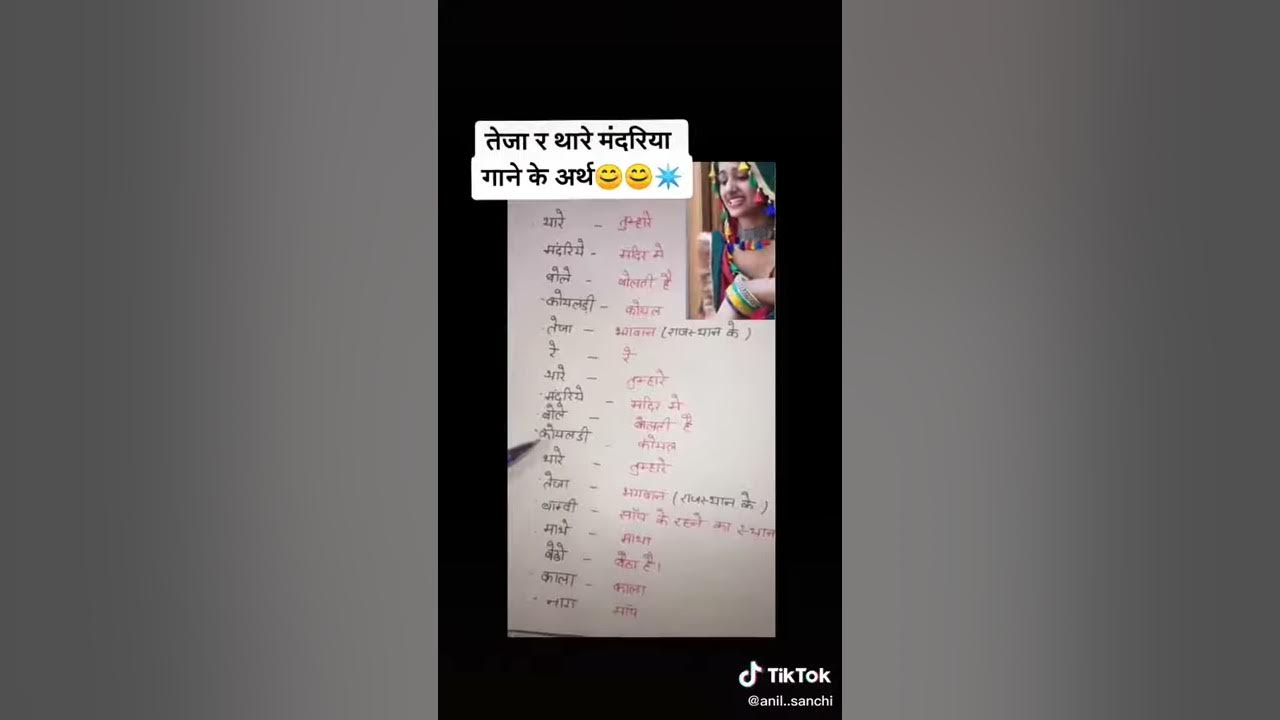 तेजा र थारे मंदरिया
गाने के अर्थ😊😊✴
थारे - तुम्हारे
मंदरिये - मंदिर मे
बोले - बोलती है
कोयलड़ी - कोयल
तेजा - भगवान (राजस्थान के)
रे - रे
थारे - तुम्हारे
मंदरिये - मंदिर मे
बोले - बोलती है
कोयलडी - कोयल
थारे - तुम्हारे
तेजा - भगवान (राजस्थान के)
बाम्बी - साँप के रहने का स्थान
माथे - माथा
बैठो - बैठा है।
काला - काला
नाग साँप
TikTok
@anil..sanchi